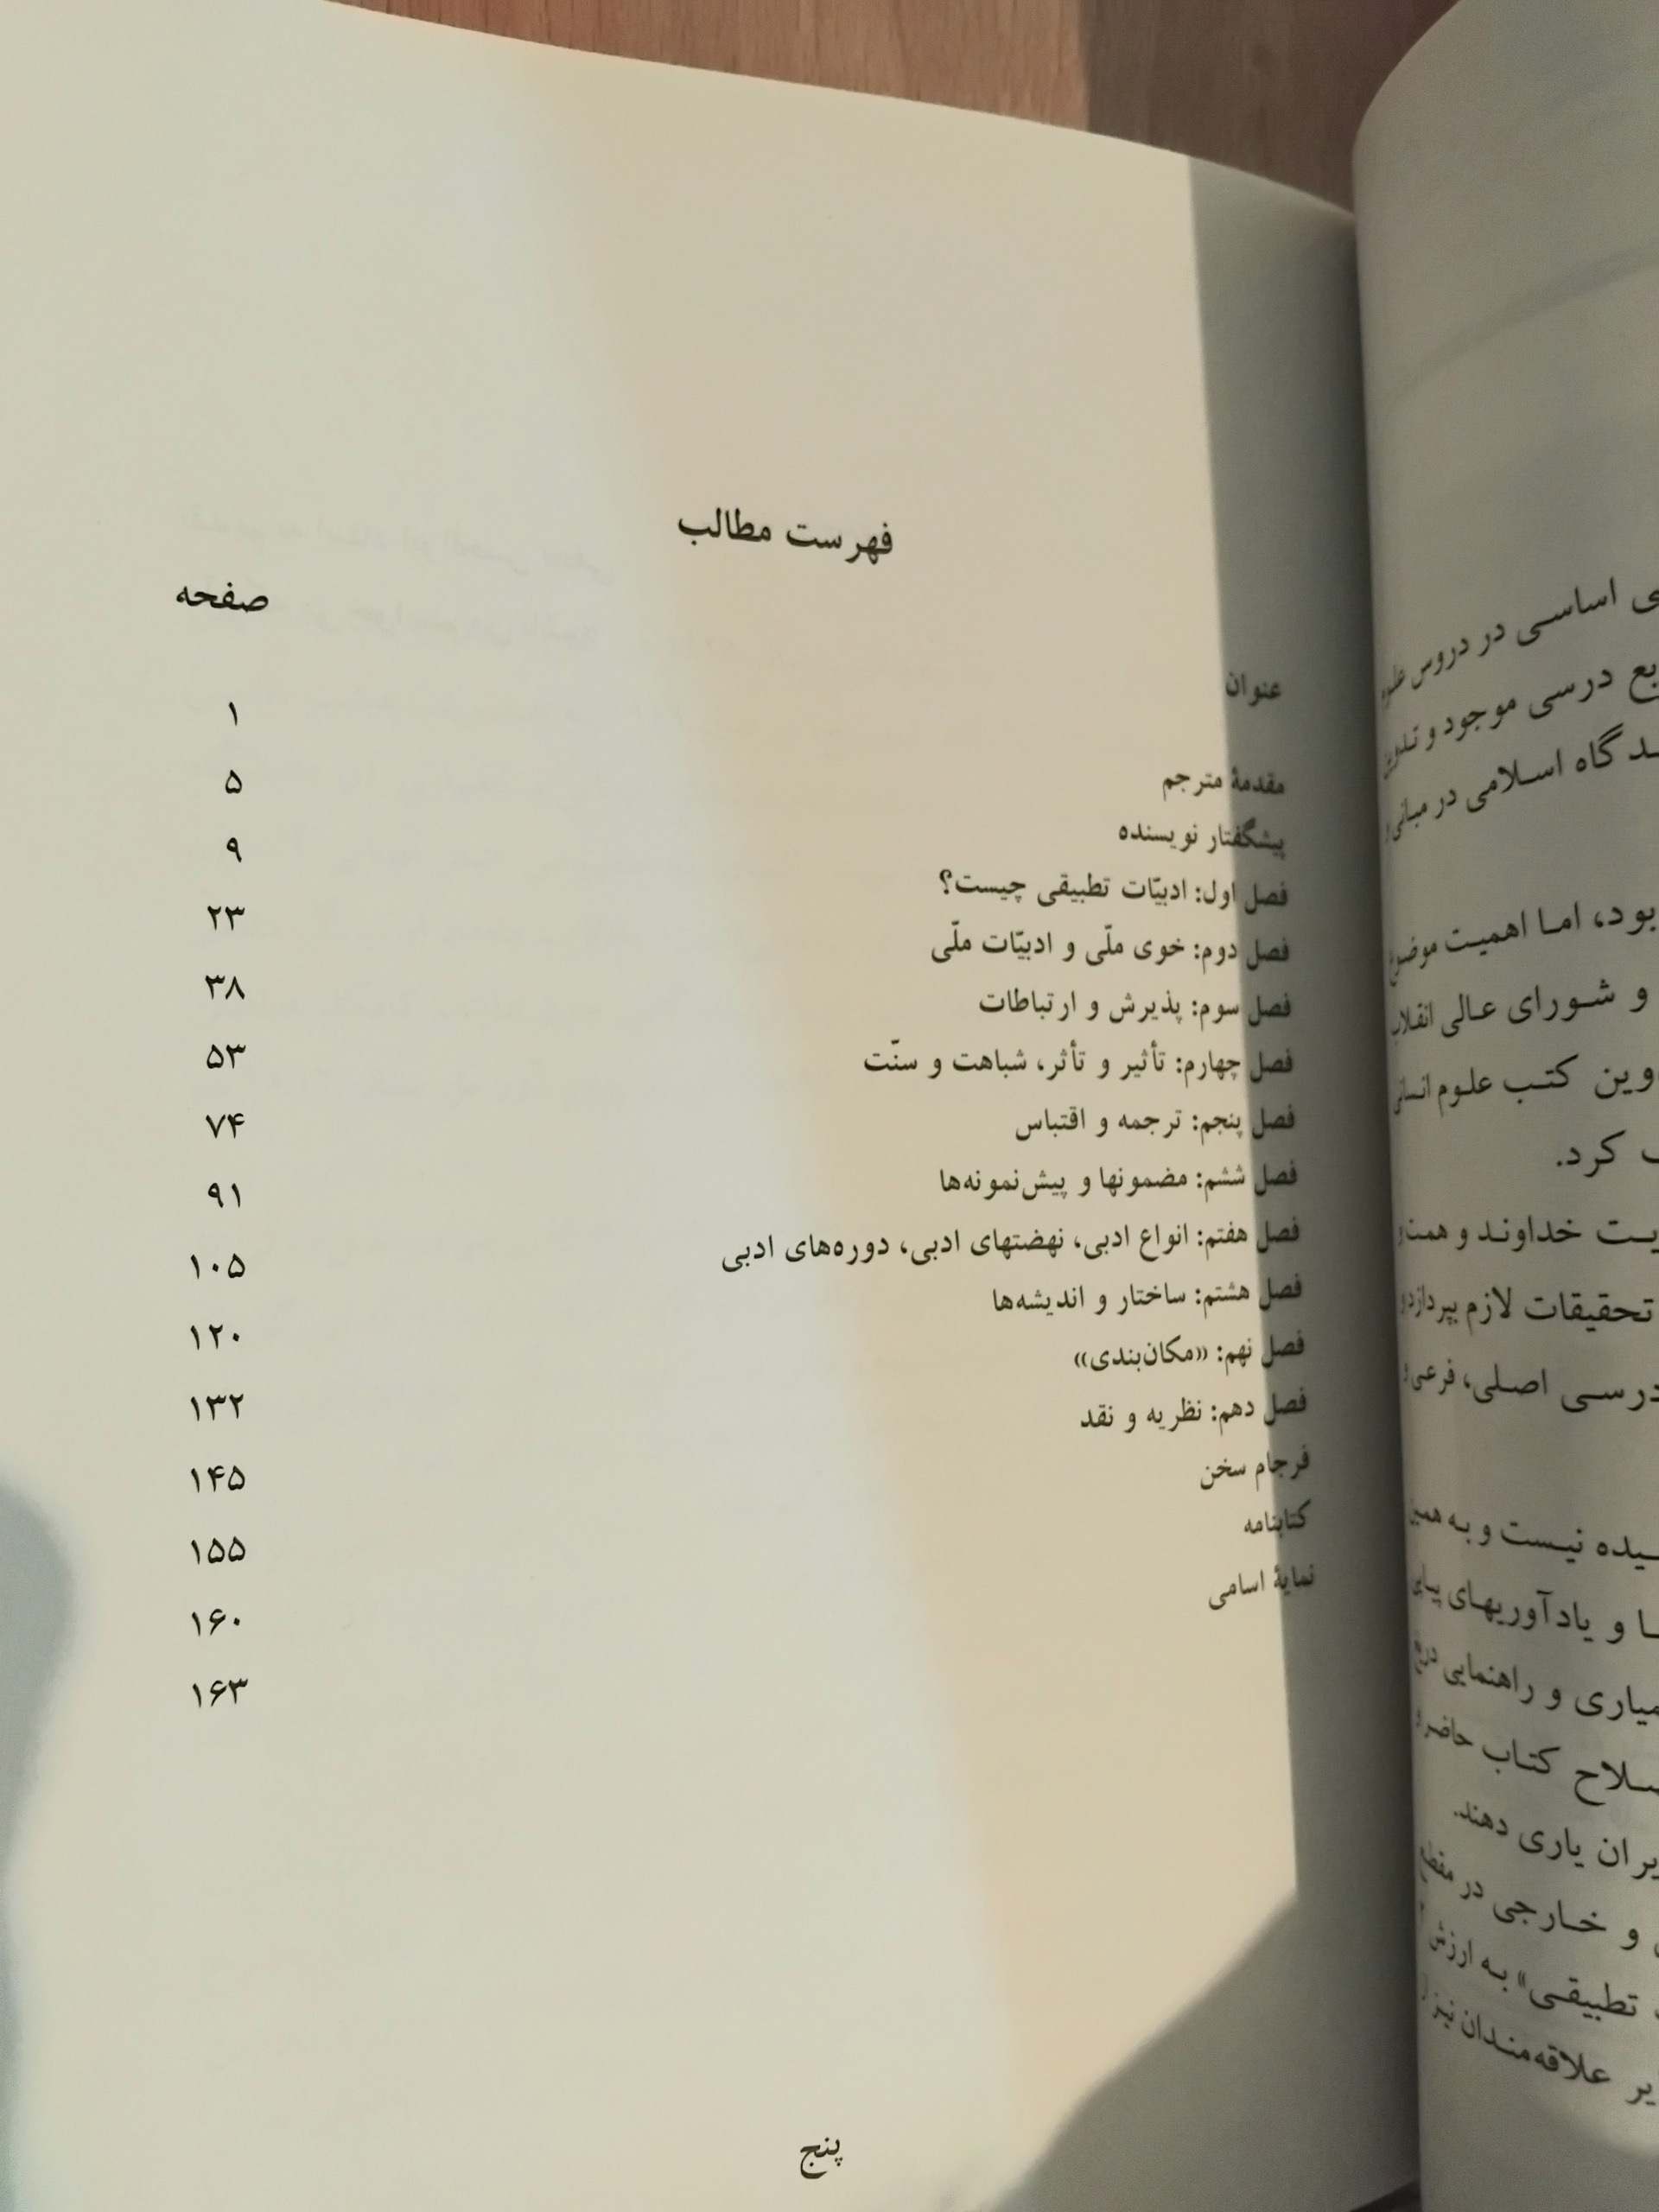 فهرست مطالب
عنوان صفحه
مقدمهٔ مترجم ۱
پیشگفتار نویسنده ۵
فصل اول: ادبیّات تطبیقی چیست؟ ۹
فصل دوم: خوی ملّی و ادبیّات ملّی ۲۳
فصل سوم: پذیرش و ارتباطات ۳۸
فصل چهارم: تأثیر و تأثر، شباهت و سنّت ۵۳
فصل پنجم: ترجمه و اقتباس ۷۴
فصل ششم: مضمونها و پیش‌نمونه‌ها ۹۱
فصل هفتم: انواع ادبی، نهضتهای ادبی، دوره‌های ادبی ۱۰۵
فصل هشتم: ساختار و اندیشه‌ها ۱۲۰
فصل نهم: «مکان‌بندی» ۱۳۲
فصل دهم: نظریه و نقد ۱۴۵
فرجام سخن ۱۵۵
کتابنامه ۱۶۰
نمایهٔ اسامی ۱۶۳
پنج
اساسی در دروس علوم
درسی موجود و تدوین
گاه اسلامی در مبانی
بود، اما اهمیت موضوع
و شورای عالی انقلاب
کتب علوم انسانی
کرد.
خداوند و همت
تحقیقات لازم بپردازد و
درسی اصلی، فرعی
نیست و به همین
و یادآوریهای
و راهنمایی
کتاب حاضر
یاری دهند.
و خارجی در مقطع
تطبیقی» به ارزش
علاقه‌مندان نیز